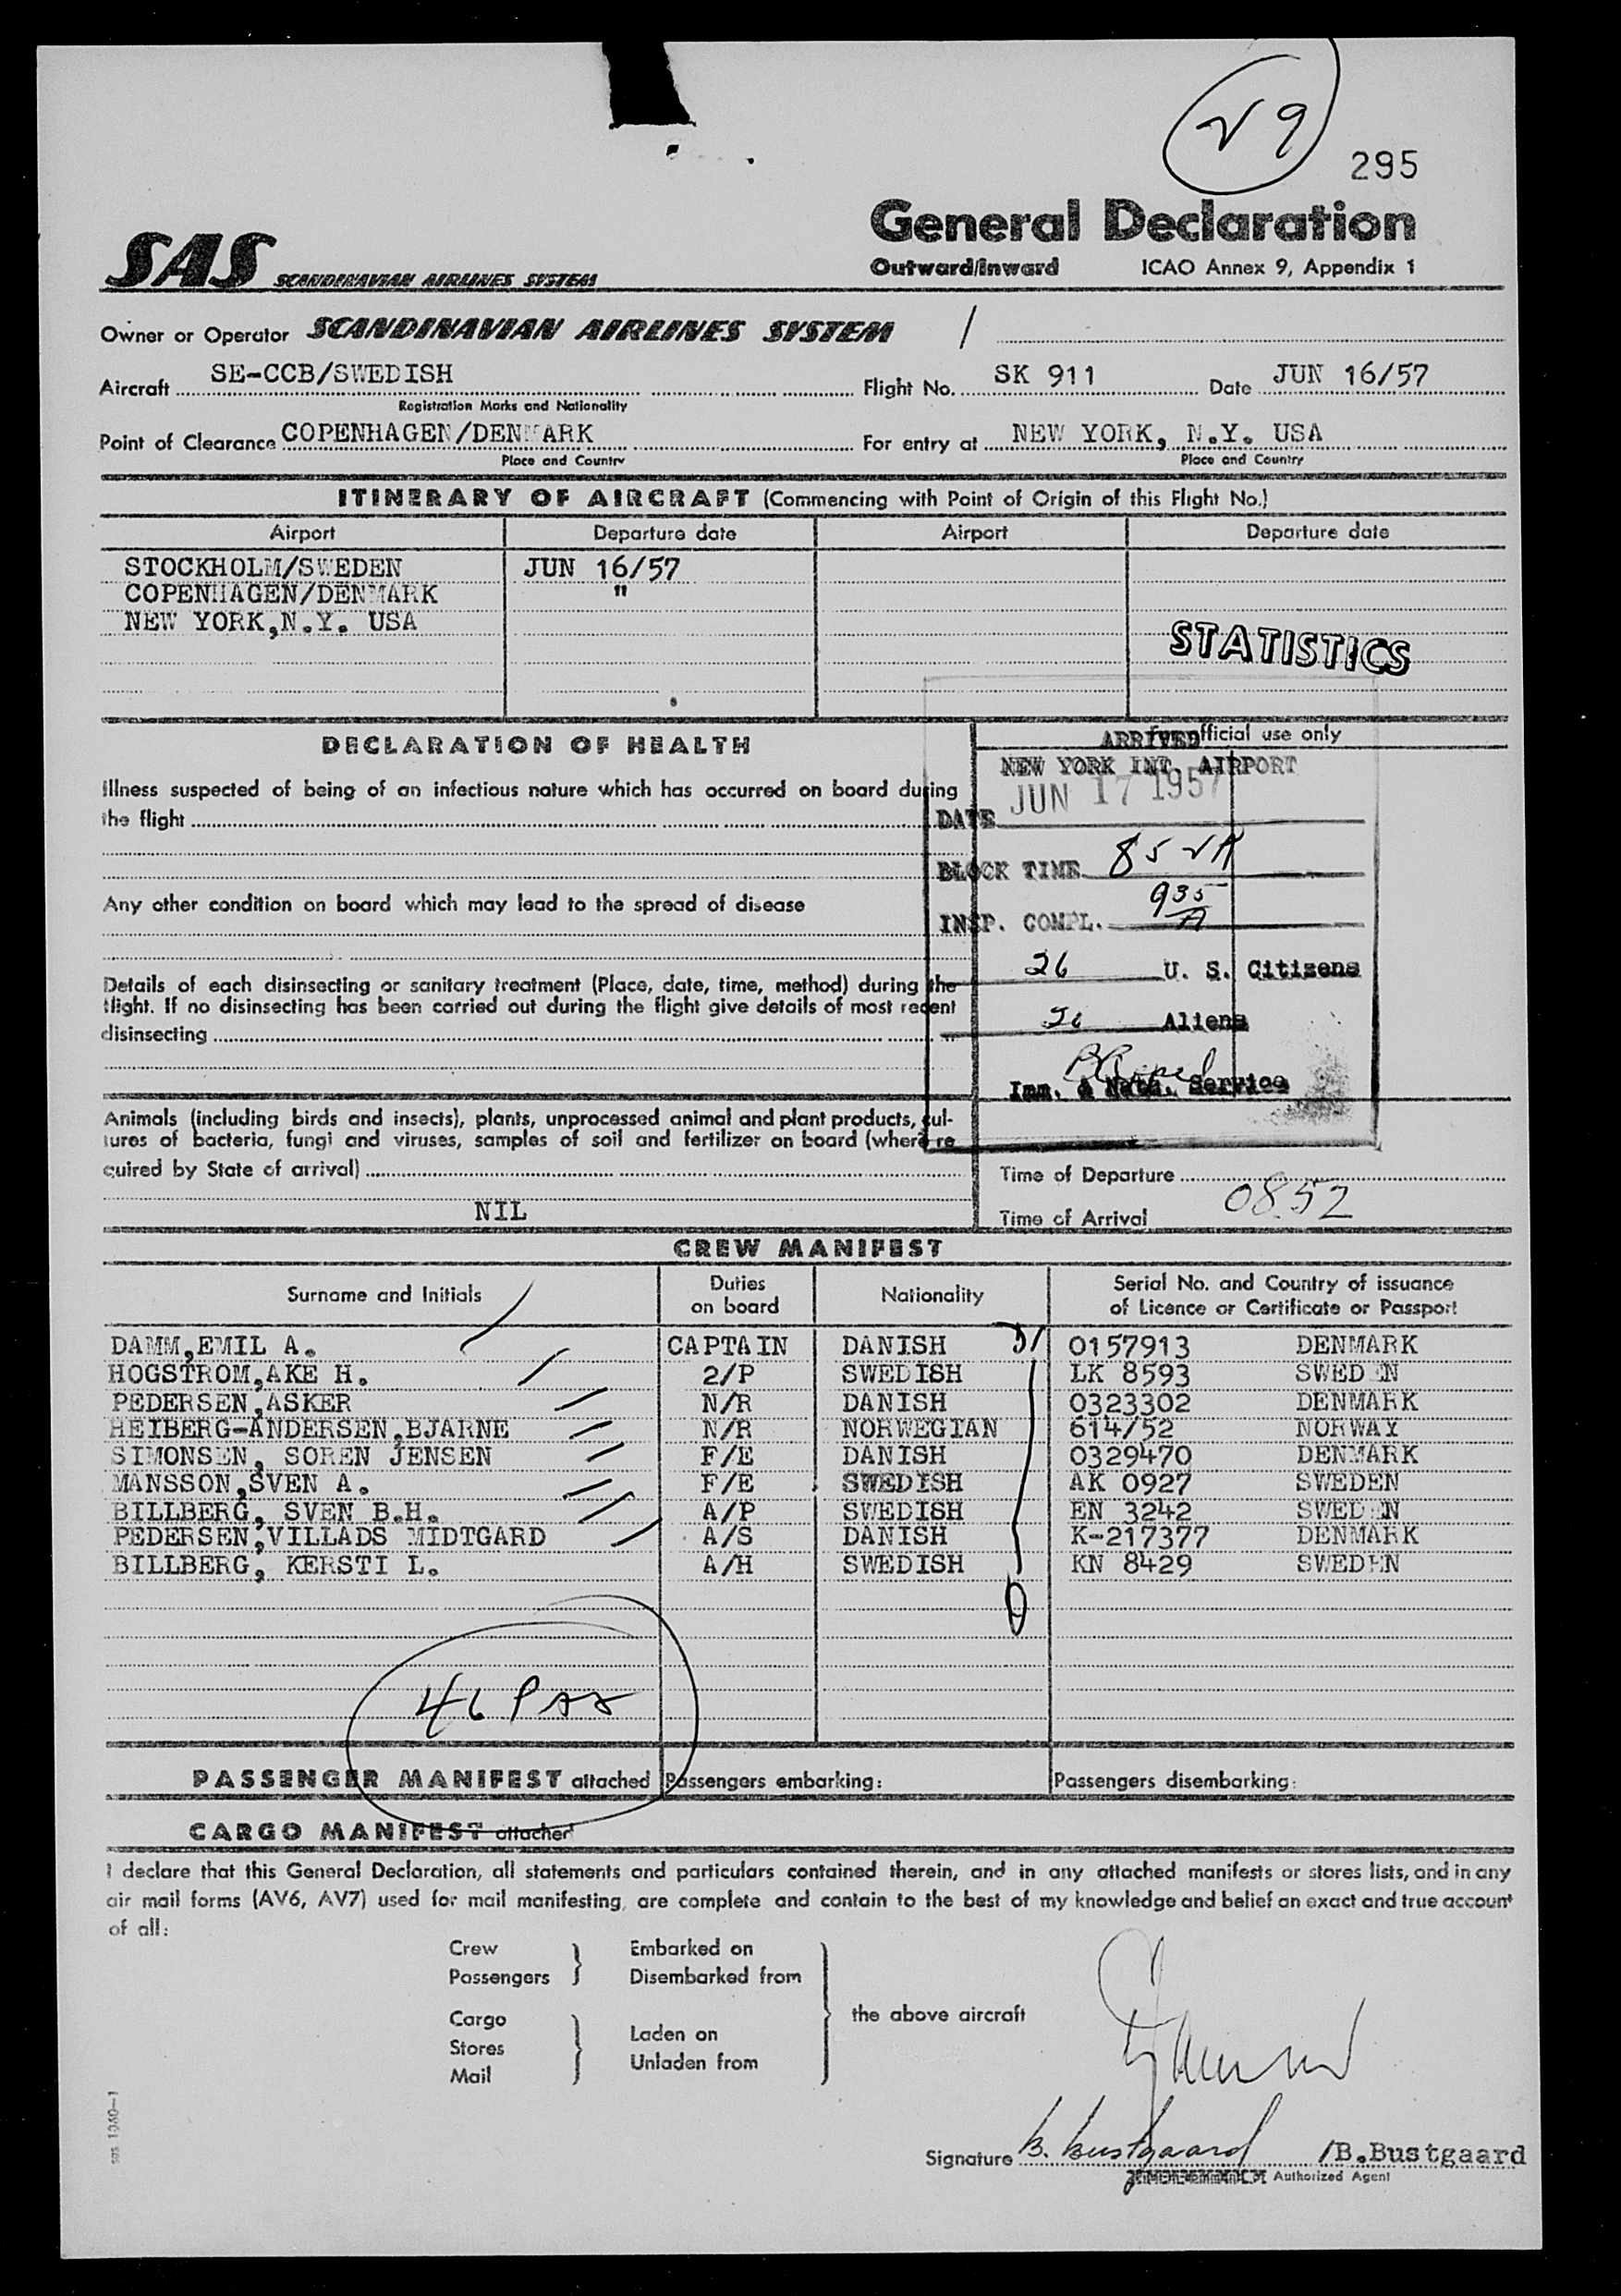 √ 9
295
General Declaration
Outward/Inward ICAO Annex 9, Appendix 1
SAS SCANDINAVIAN AIRLINES SYSTEM
Owner or Operator SCANDINAVIAN AIRLINES SYSTEM /
Aircraft SE-CCB/SWEDISH Flight No. SK 911 Date JUN 16/57
Registration Marks and Nationality
Point of Clearance COPENHAGEN/DENMARK For entry at NEW YORK, N.Y. USA
Place and Country Place and Country
ITINERARY OF AIRCRAFT (Commencing with Point of Origin of this Flight No.)
Airport Departure date Airport Departure date
STOCKHOLM/SWEDEN JUN 16/57
COPENHAGEN/DENMARK "
NEW YORK,N.Y. USA
STATISTICS
DECLARATION OF HEALTH
For official use only
ARRIVED
NEW YORK INT. AIRPORT
Illness suspected of being of an infectious nature which has occurred on board during
the flight
DATE JUN 17 1957
BLOCK TIME 852A
Any other condition on board which may lead to the spread of disease
INSP. COMPL. 935 A
26 U. S. Citizens
Details of each disinsecting or sanitary treatment (Place, date, time, method) during the
flight. If no disinsecting has been carried out during the flight give details of most recent
disinsecting
20 Aliens
Imm. & Natz. Service
Animals (including birds and insects), plants, unprocessed animal and plant products, cul-
tures of bacteria, fungi and viruses, samples of soil and fertilizer on board (where re
quired by State of arrival)
NIL
Time of Departure
Time of Arrival 0852
CREW MANIFEST
Surname and Initials Duties on board Nationality Serial No. and Country of issuance of Licence or Certificate or Passport
DAMM,EMIL A. CAPTAIN DANISH 0157913 DENMARK
HOGSTROM,AKE H. 2/P SWEDISH LK 8593 SWEDEN
PEDERSEN,ASKER N/R DANISH 0323302 DENMARK
HEIBERG-ANDERSEN,BJARNE N/R NORWEGIAN 614/52 NORWAY
SIMONSEN, SOREN JENSEN F/E DANISH 0329470 DENMARK
MANSSON,SVEN A. F/E SWEDISH AK 0927 SWEDEN
BILLBERG, SVEN B.H. A/P SWEDISH EN 3242 SWEDEN
PEDERSEN,VILLADS MIDTGARD A/S DANISH K-217377 DENMARK
BILLBERG, KERSTI L. A/H SWEDISH KN 8429 SWEDEN
46 Pax
PASSENGER MANIFEST attached Passengers embarking: Passengers disembarking:
CARGO MANIFEST attached
I declare that this General Declaration, all statements and particulars contained therein, and in any attached manifests or stores lists, and in any
air mail forms (AV6, AV7) used for mail manifesting, are complete and contain to the best of my knowledge and belief an exact and true account
of all:
Crew Embarked on
Passengers Disembarked from
the above aircraft
Cargo
Stores Laden on
Mail Unladen from
Signature B. Bustgaard /B.Bustgaard
Authorized Agent
sas 1040-1